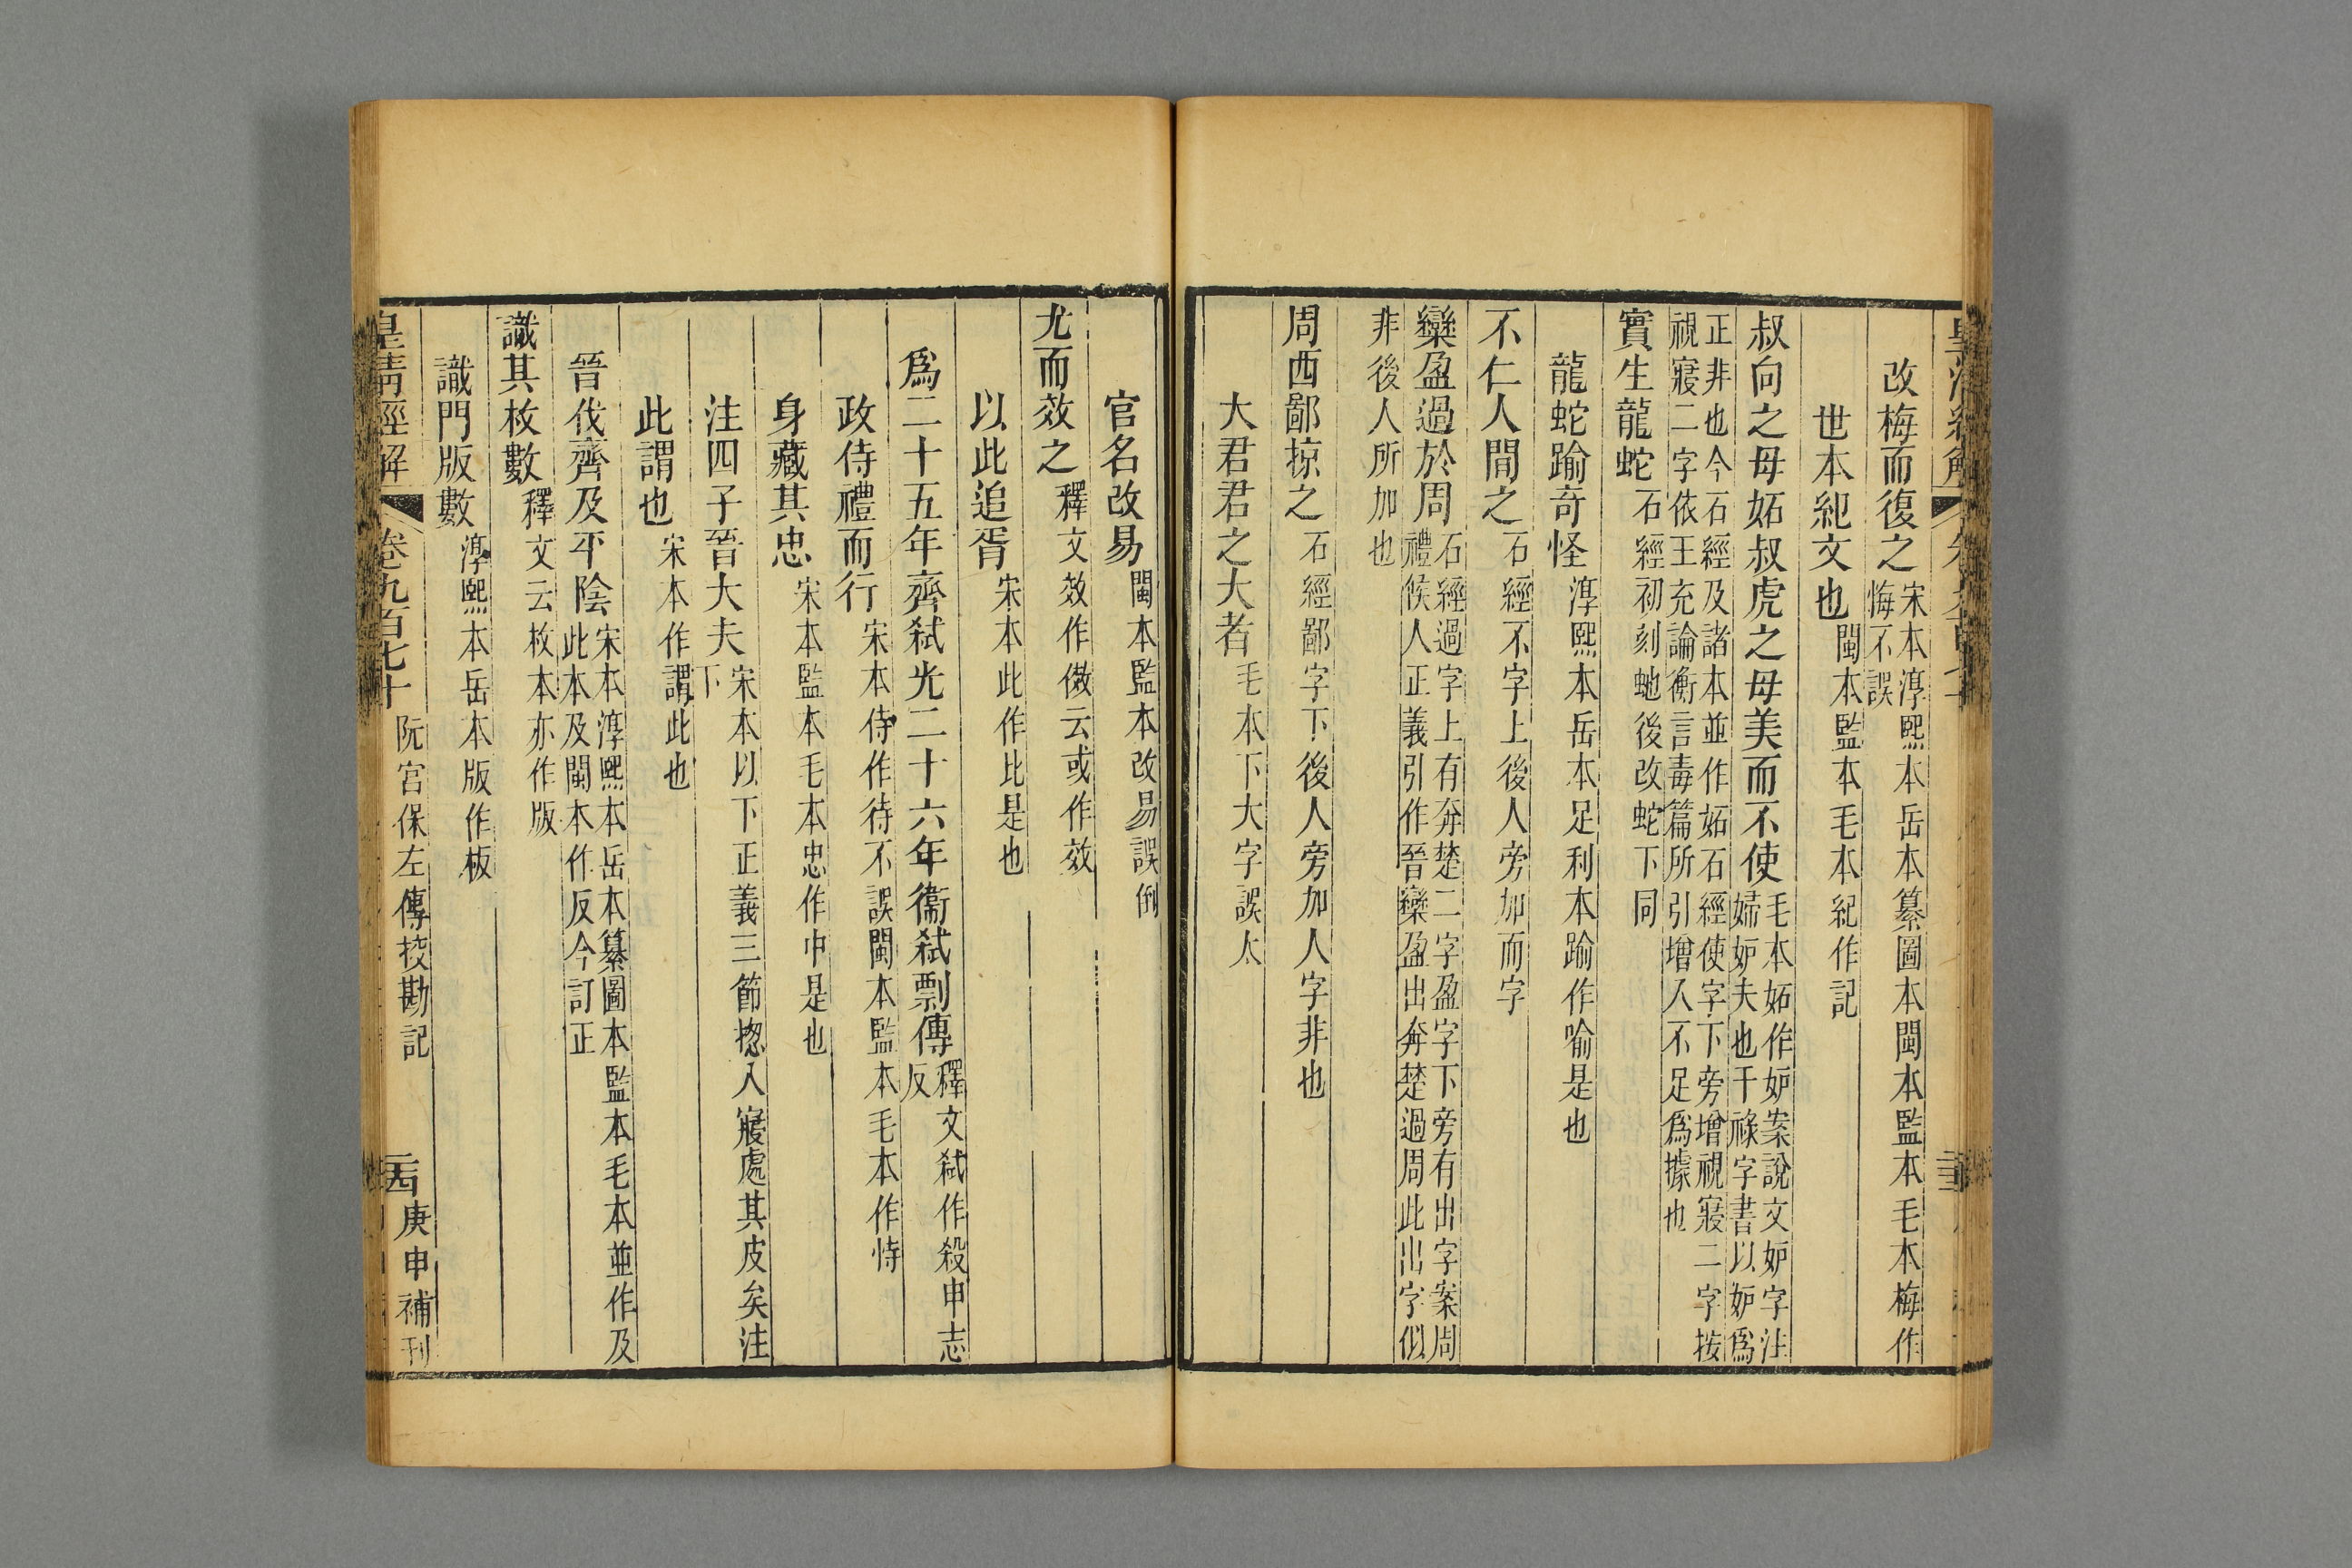 改梅而復之宋本淳熙本岳本纂圖本閩本監本毛本梅作悔不誤
世本紀文也閩本監本毛本紀作記
叔向之母妬叔虎之母美而不使毛本妬作妒案說文妒字注婦妒夫也干祿字書以妒爲
正非也今石經及諸本並作妬石經使字下旁增視寢二字按視寢二字依王充論衡言毒篇所引增入不足爲據也
實生龍蛇石經初刻虵後改蛇下同
龍蛇踰奇怪淳熙本岳本足利本踰作喻是也
不仁人閒之石經不字上後人旁加而字
欒盈過於周石經過字上有奔楚二字盈字下旁有出字案周禮候人正義引作晉欒盈出奔楚過周此出字似
非後人所加也
周西鄙掠之石經鄙字下後人旁加人字非也
大君君之大者毛本下大字誤太
官名改易閩本監本改易誤倒
尤而效之釋文效作傚云或作效
以此追胥宋本此作比是也
爲二十五年齊弒光二十六年衞弒剽傳釋文弒作殺申志反
政侍禮而行宋本侍作待不誤閩本監本毛本作恃
身藏其忠宋本監本毛本忠作中是也
注四子晉大夫宋本以下正義三節揔入寢處其皮矣注下
此謂也宋本作謂此也
晉伐齊及平陰宋本淳熙本岳本纂圖本監本毛本並作及此本及閩本作反今訂正
識其枚數釋文云枚本亦作版
識門版數淳熙本岳本版作板
皇清經解 卷九百七十 阮宮保左傳挍勘記 庚申補刊